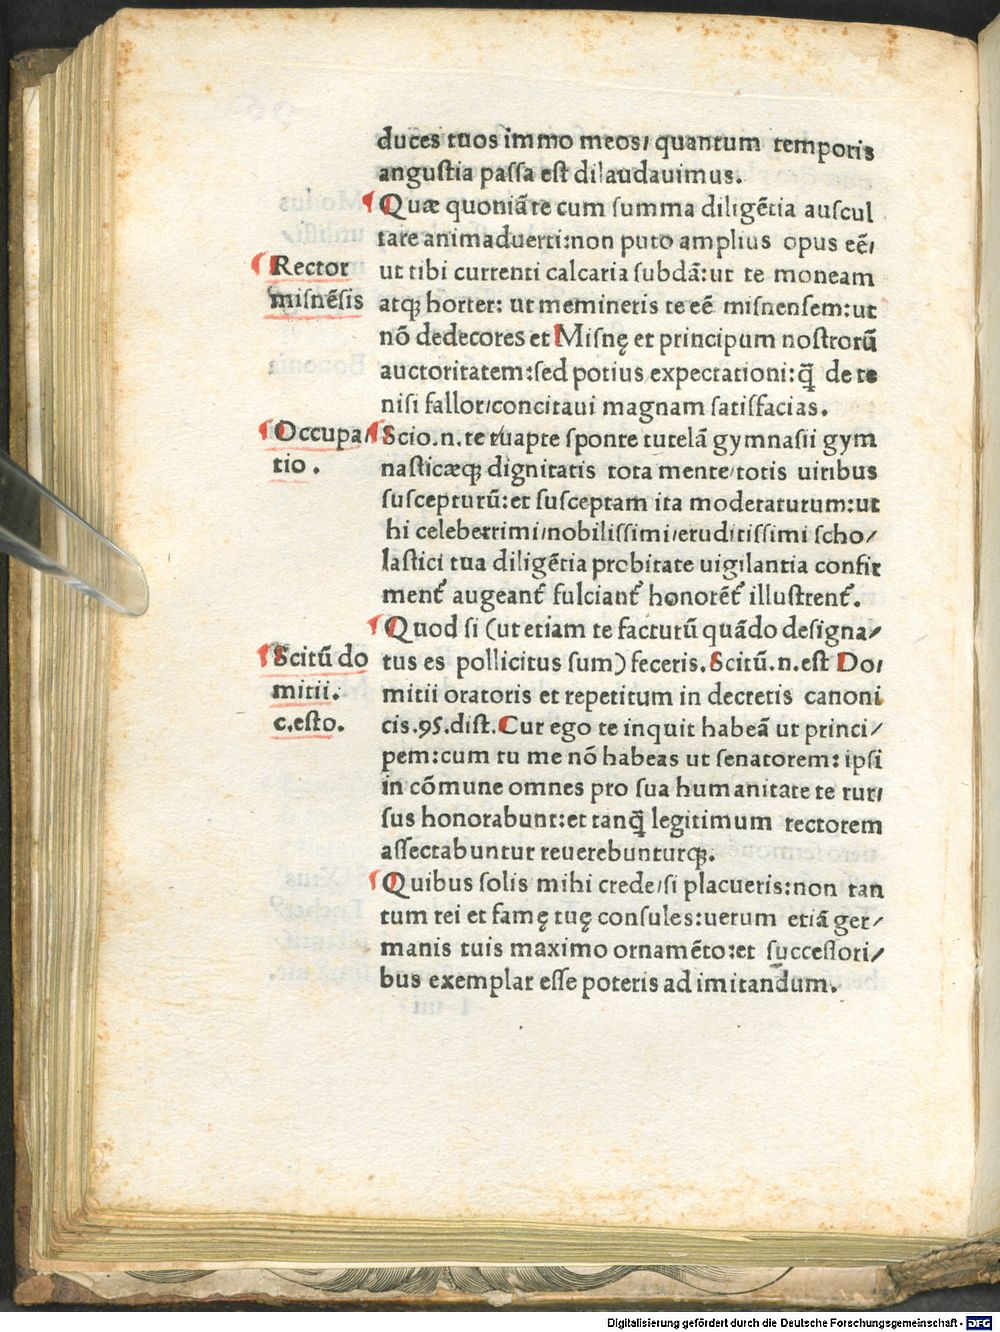 duces tuos immo meos/ quantum temporis
angustia passa est dilaudauimus.
Quæ quoniā te cum summa diligētia auscul
tare animaduerti: non puto amplius opus eē/
Rector
misnēsis
ut tibi currenti calcaria subdā: ut te moneam
atqꝫ horter: ut memineris te eē misnensem: ut
nō dedecores et Misnę et principum nostrorū
auctoritatem: sed potius expectationi: q̄ de te
nisi fallor/ concitaui magnam satisfacias.
Occupa/
tio.
Scio.n.te tuapte sponte tutelā gymnasii gym
nasticæqꝫ dignitatis tota mente/ totis uiribus
suscepturū: et susceptam ita moderaturum: ut
hi celeberrimi/ nobilissimi/ eruditissimi scho/
lastici tua diligētia probitate uigilantia confir
ment᷑ augeant᷑ fulciant᷑ honorēt᷑ illustrent᷑.
Quod si (ut etiam te facturū quādo designa/
Scitū do
mitii.
c.esto.
tus es pollicitus sum) feceris. Scitū.n.est Do/
mitii oratoris et repetitum in decretis canoni
cis.95.dist. Cur ego te inquit habeā ut princi/
pem: cum tu me nō habeas ut senatorem: ipsi
in cōmune omnes pro sua humanitate te rur/
sus honorabunt: et tanq̄ legitimum rectorem
assectabuntur reuerebunturqꝫ.
Quibus solis mihi crede/ si placueris: non tan
tum rei et famę tuę consules: uerum etiā ger/
manis tuis maximo ornamēto: et successori/
bus exemplar esse poteris ad imitandum.
Digitalisierung gefördert durch die Deutsche Forschungsgemeinschaft - DFG